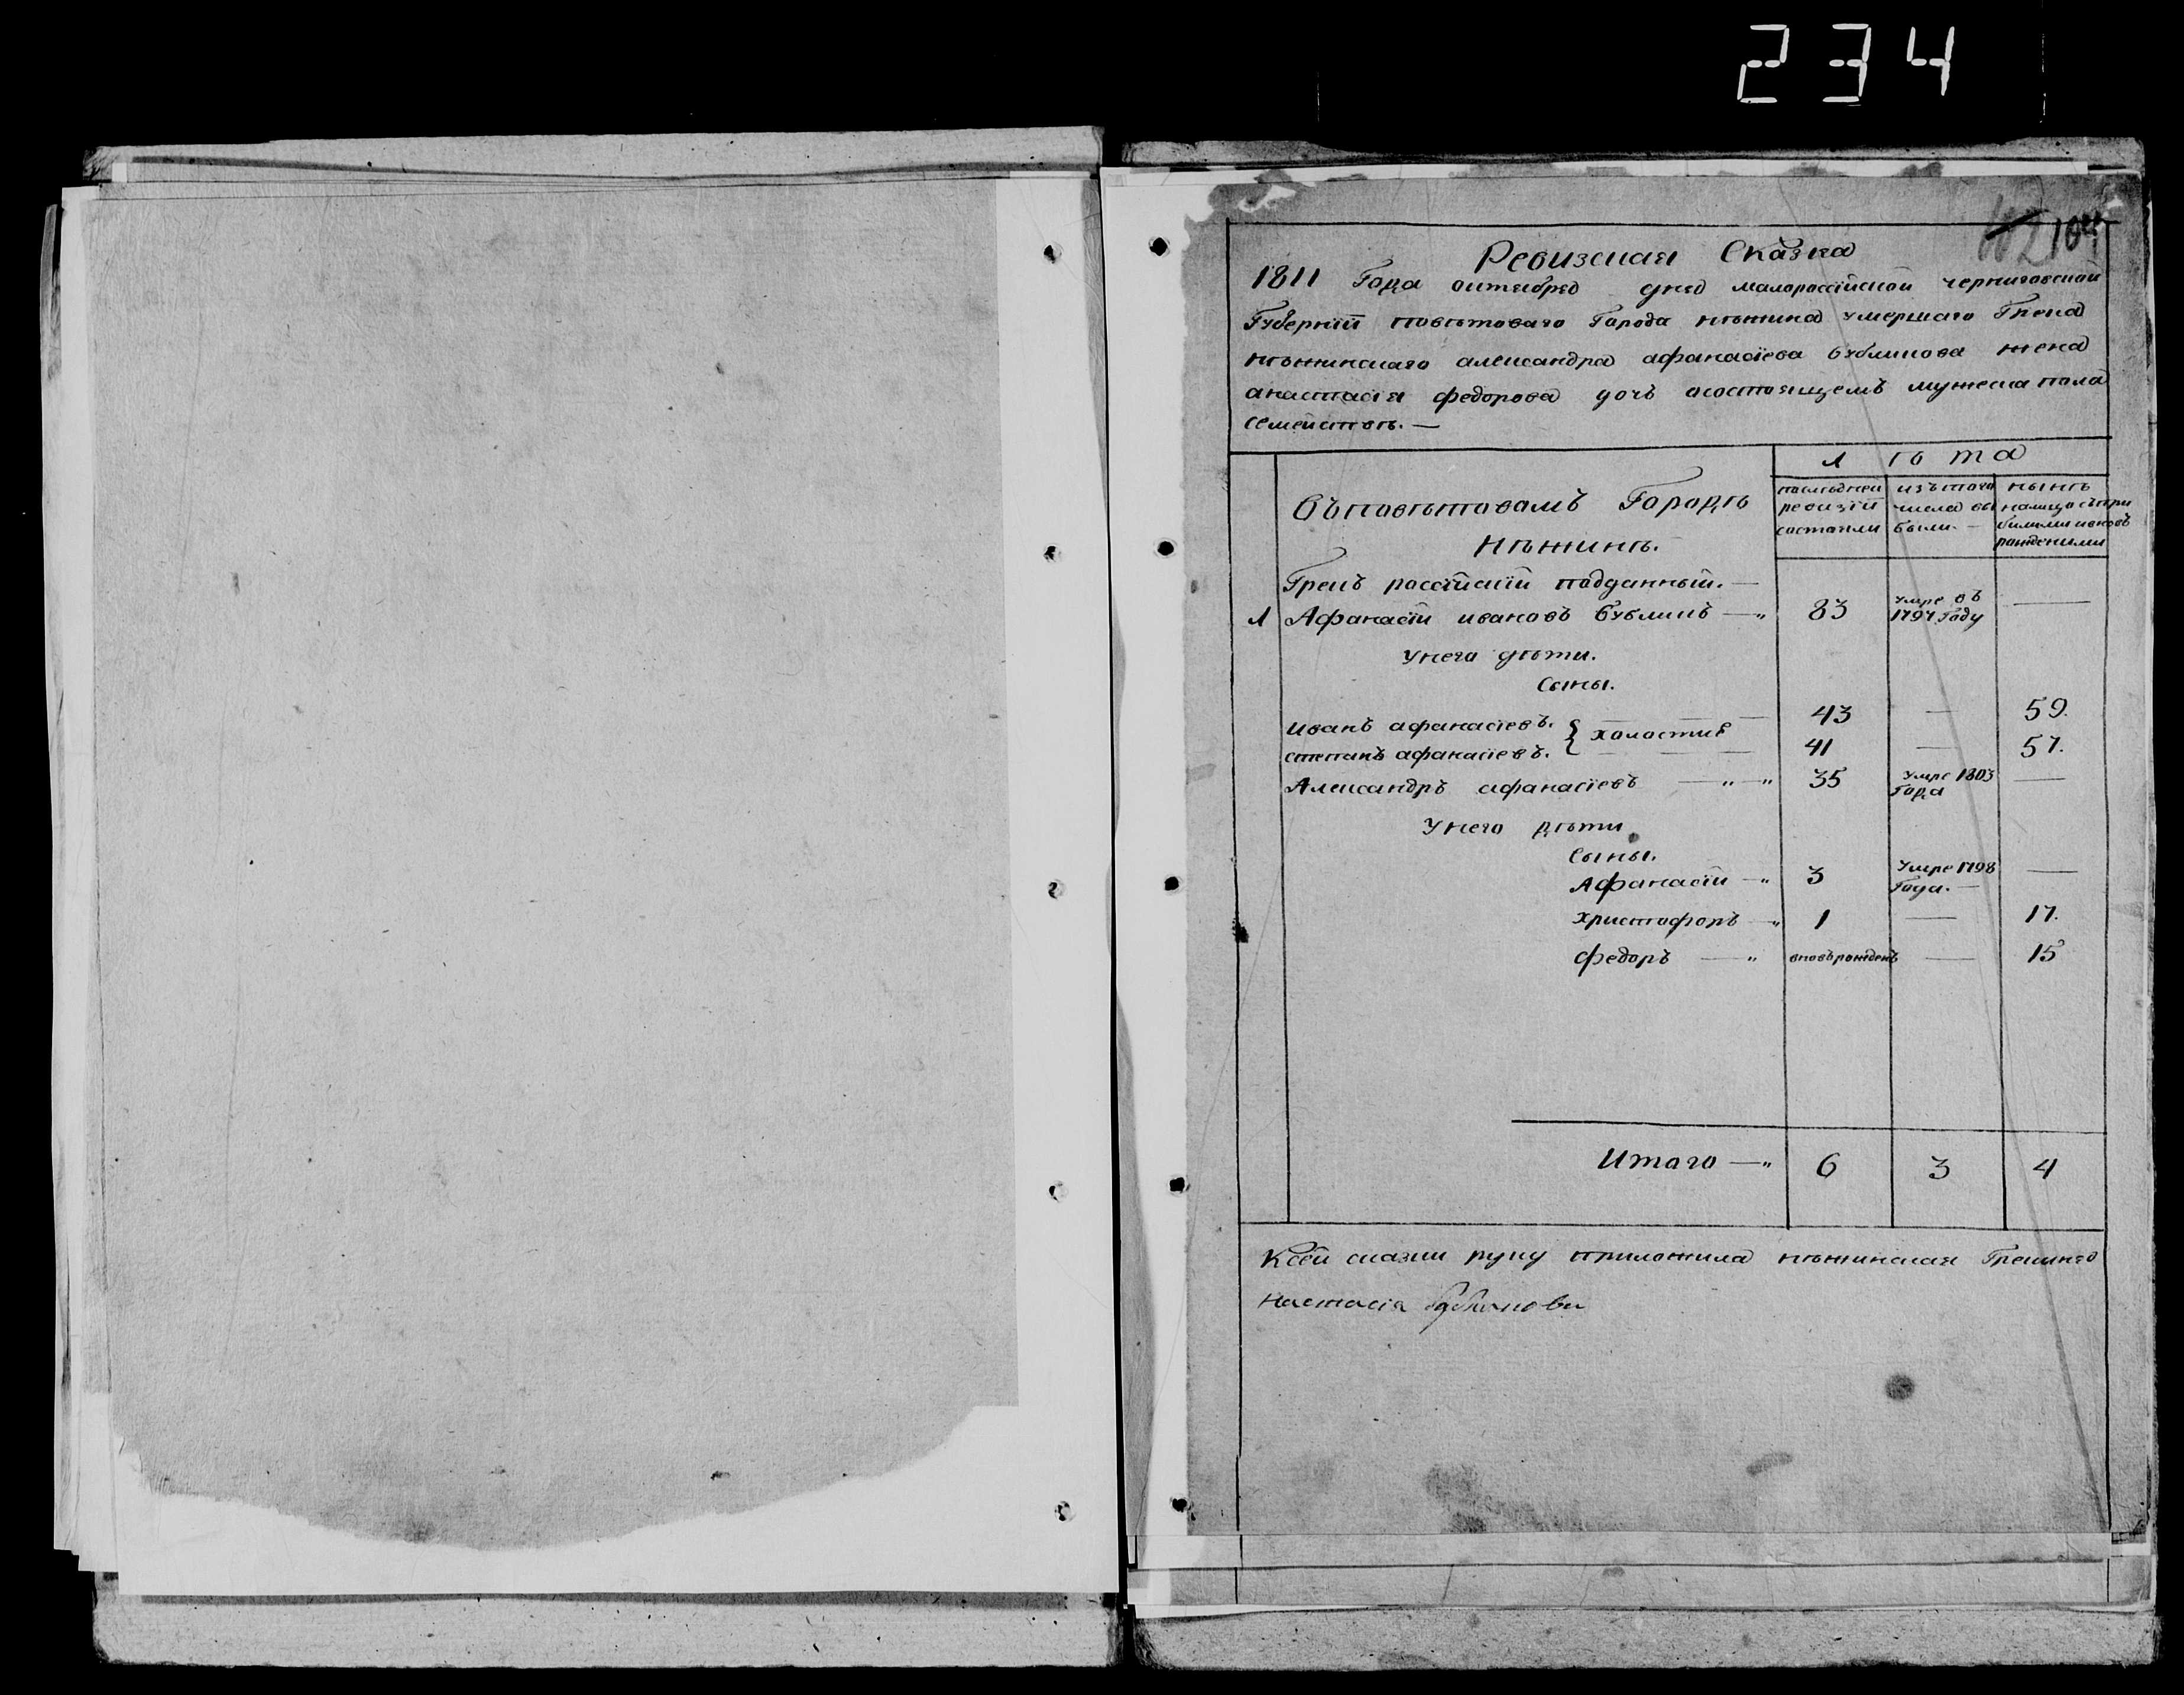 234
102 104
Ревизская Сказка
1811 Года октебря дня малороссійской черниговской
Губерніи повѣтоваго Города нѣжина умершаго Грека
нѣжинскаго александра афанасіева бубликова жена
анастасія федорова дочь осостоящемъ мужеска пола
семействѣ. —
Лѣта
Въповѣтовомъ Городѣ
Нѣжинѣ.
последней ревизіи состояли
изътого числа выбыли. —
нынѣ налицо съприбылыми ивновь рожденими
Грекъ россійскій подданный. —
1 Афанасій ивановъ бубликъ — „ 83 умре въ 1797 Году —
унего дѣти.
Сыны.
иванъ афанасіевъ. } холостие — 43 — 59.
степанъ афанасіевъ. — 41 — 57.
Александръ афанасіевъ — „ — „ 35 умре 1803 Года —
Унего дѣти
Сыны.
Афанасій — „ 3 Умре 1798 Года. — —
христофоръ — „ 1 — 17.
федоръ — „ вновьрожденъ — 15
Итого — „ 6 3 4
Ксей сказки руку приложила нѣжинская Грекиня
Настасія Бубликова